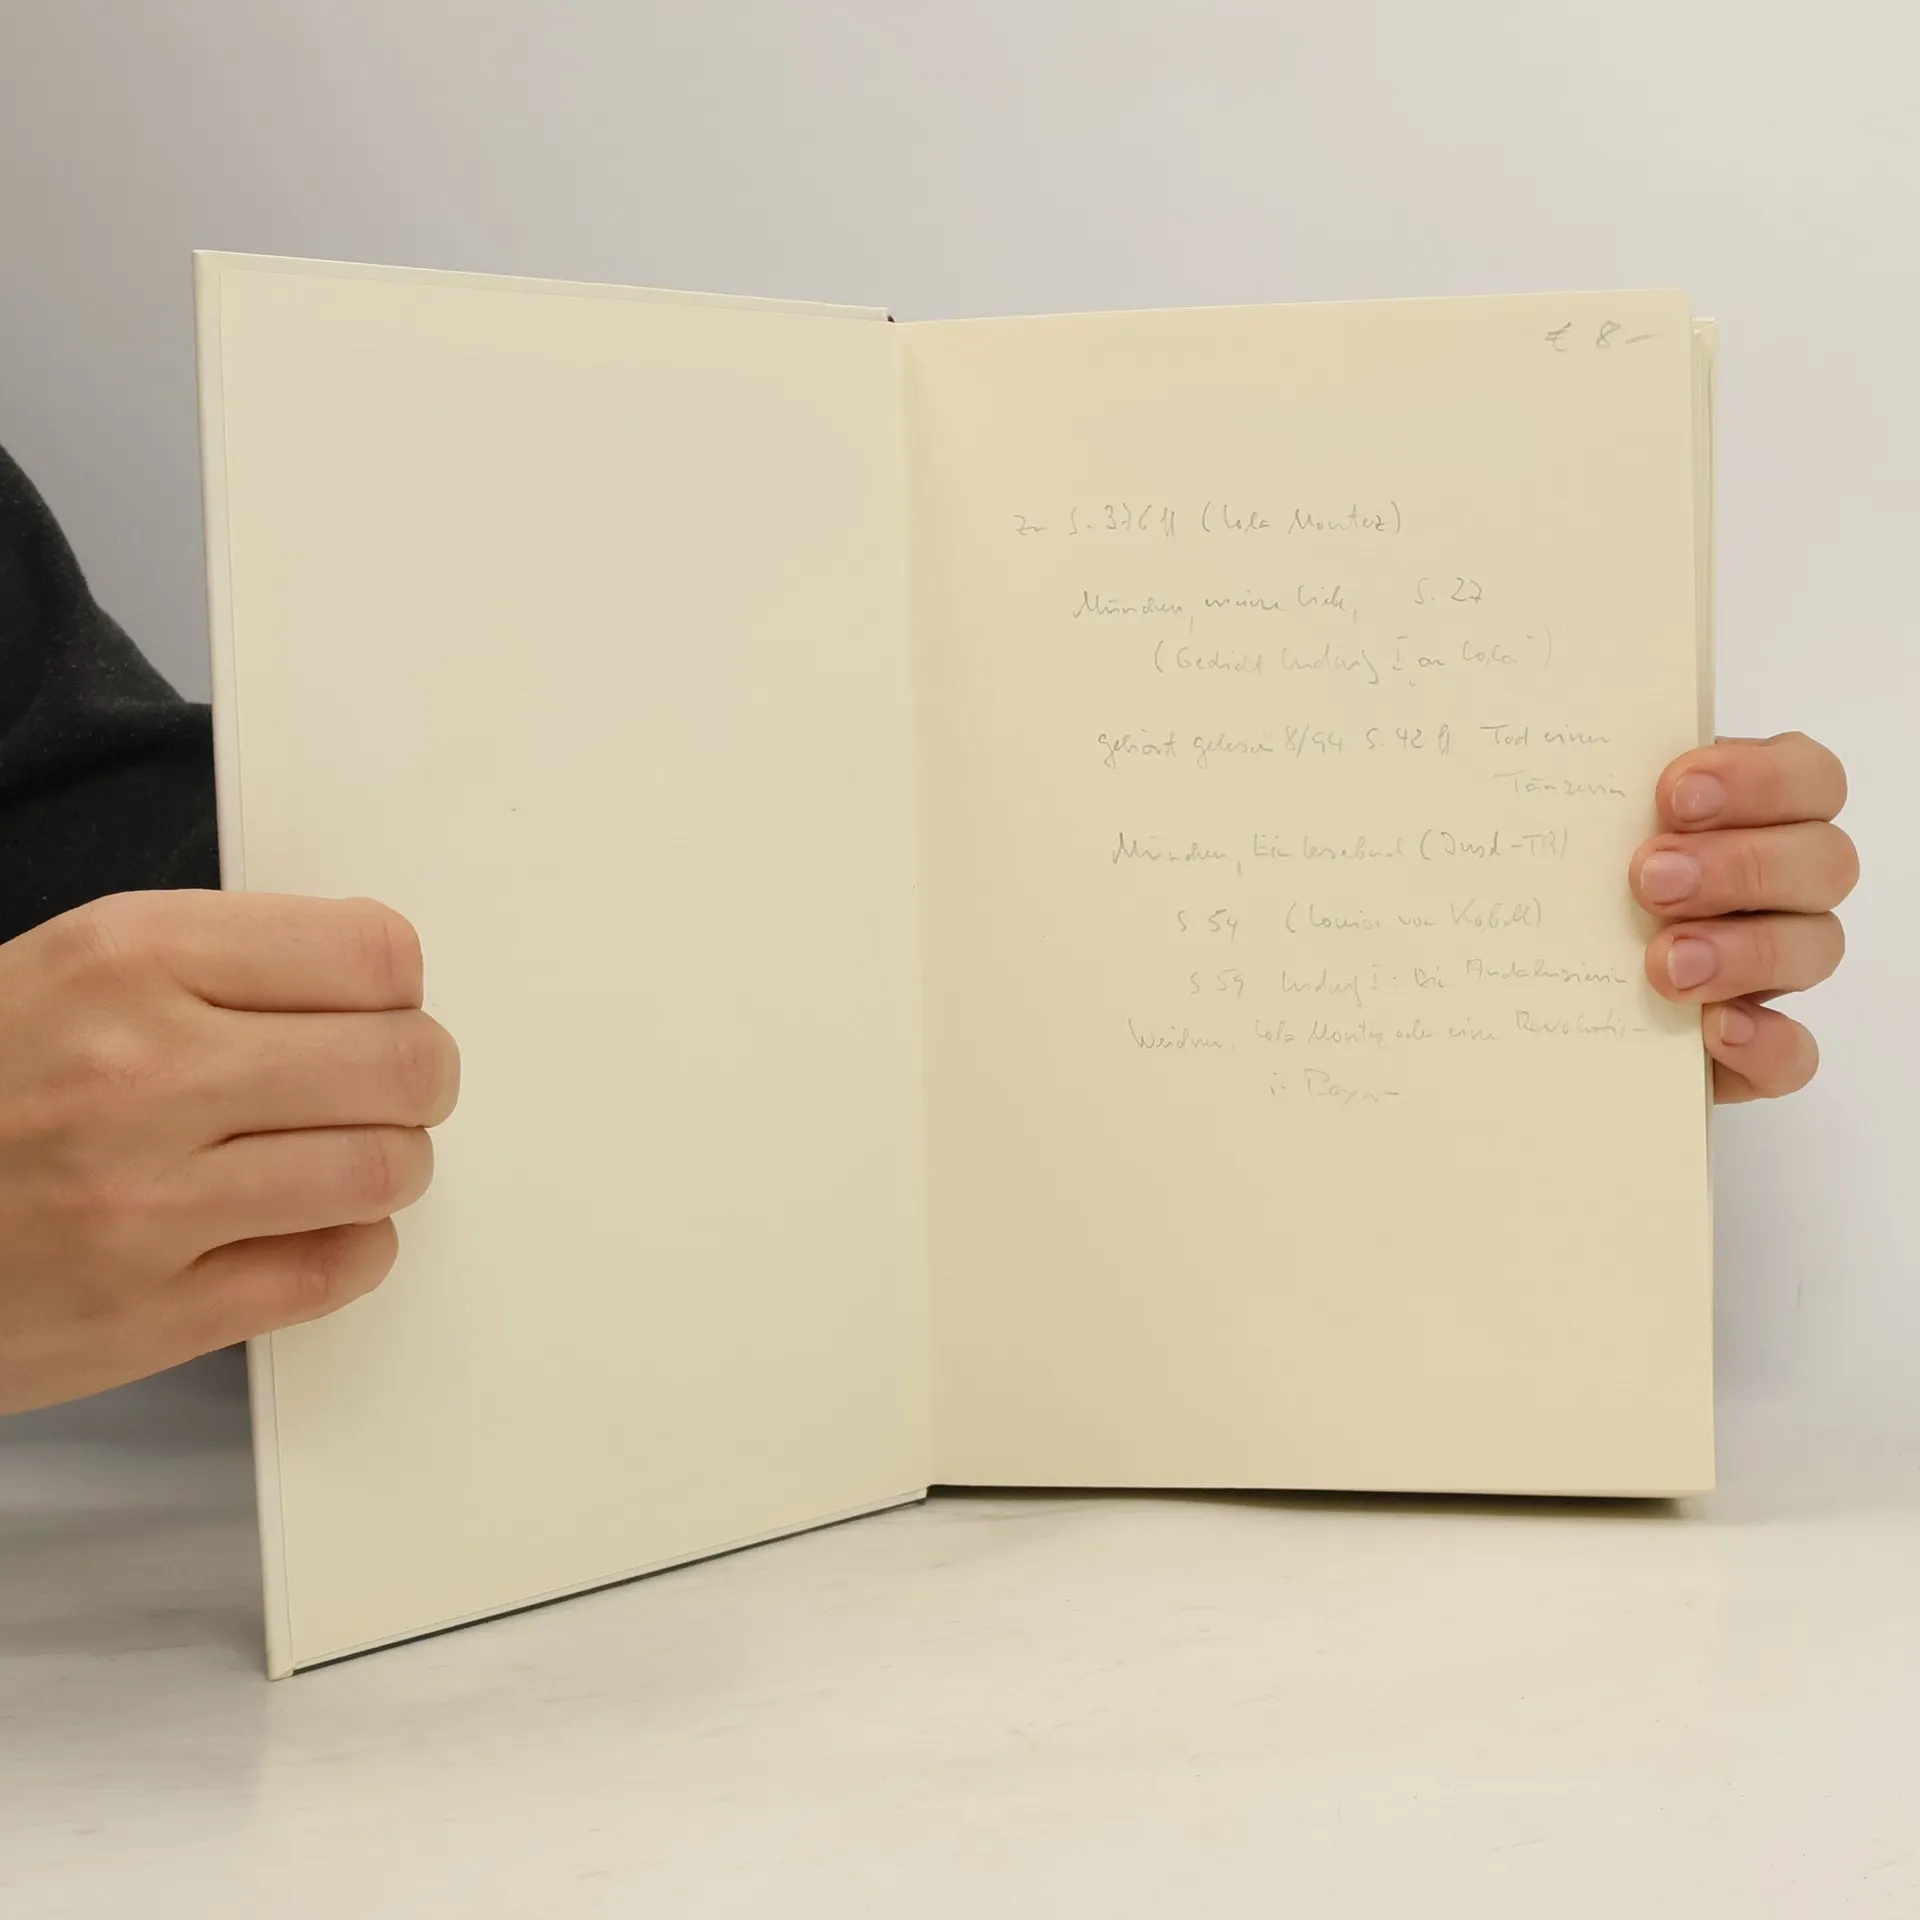 € 8 –
Zu S. 376 ff (Lola Montez)
München, meine Liebe, S. 27
(Gedicht Ludwig I an Lola)
gehört gelesen 8/94 S. 42 ff Tod einer
Tänzerin
München, Ein Lesebuch (Insel-TB)
S 54 (Louise von Kobell)
S 59 Ludwig I: Die Andalusierin
Weidner, Lola Montez oder eine Revolution
in Bayern